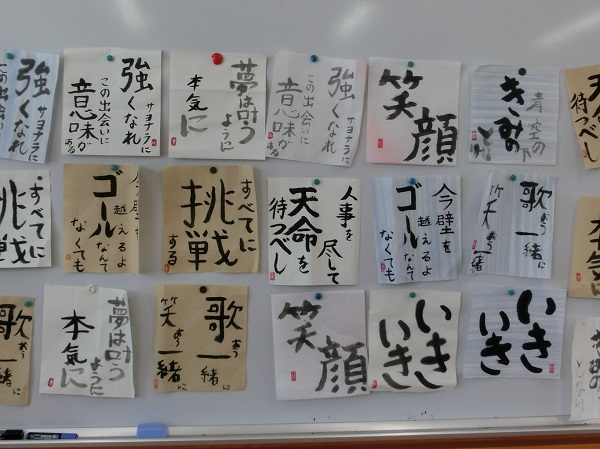 強くなれ
サヨナラに
この出会い
サヨナラに
強くなれ
この出会いに
意味が
ある
夢は叶う
ように
本気に
サヨナラに
強くなれ
この出会いに
意味が
ある
笑顔
青空の下
きみの
となり
天命
待つべし
すべてに
挑戦
今壁を
越えるよ
ゴール
なんて
なくても
すべてに
挑戦
する
人事を
尽して
天命を
待つべし
今壁を
越えるよ
ゴール
なんて
なくても
歌おう
一緒に
笑おう
一緒
本気に
歌おう
一緒に
夢は叶う
ように
本気に
歌おう
一緒に
笑おう
一緒に
笑顔
いき
いき
いき
いき